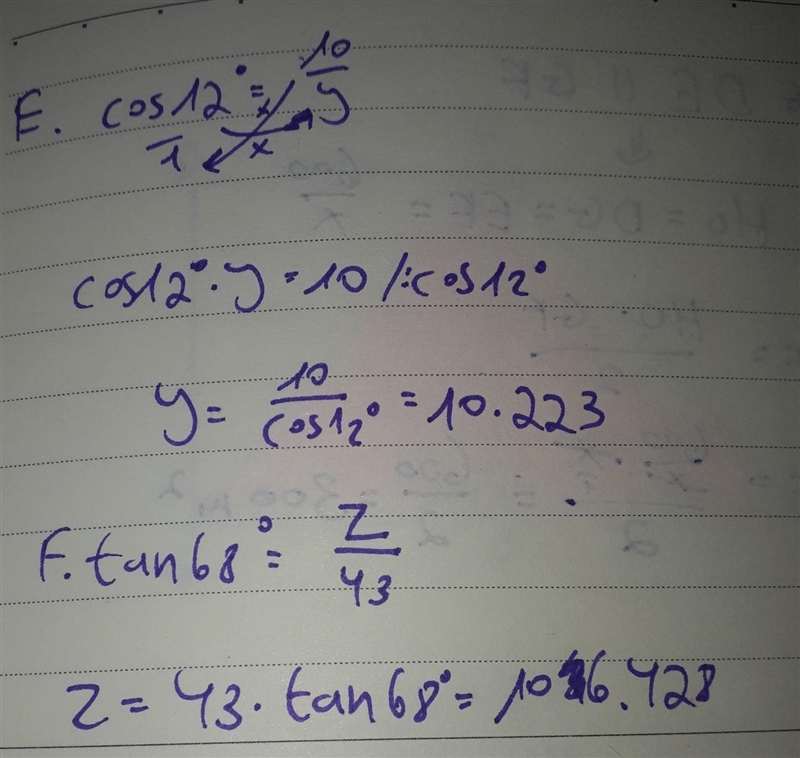 E. cos12° = 10/y
1 x x
cos12° · y = 10 /:cos12°
y = 10/cos12° = 10.223
F. tan68° = z/43
z = 43 · tan68° = 106.428